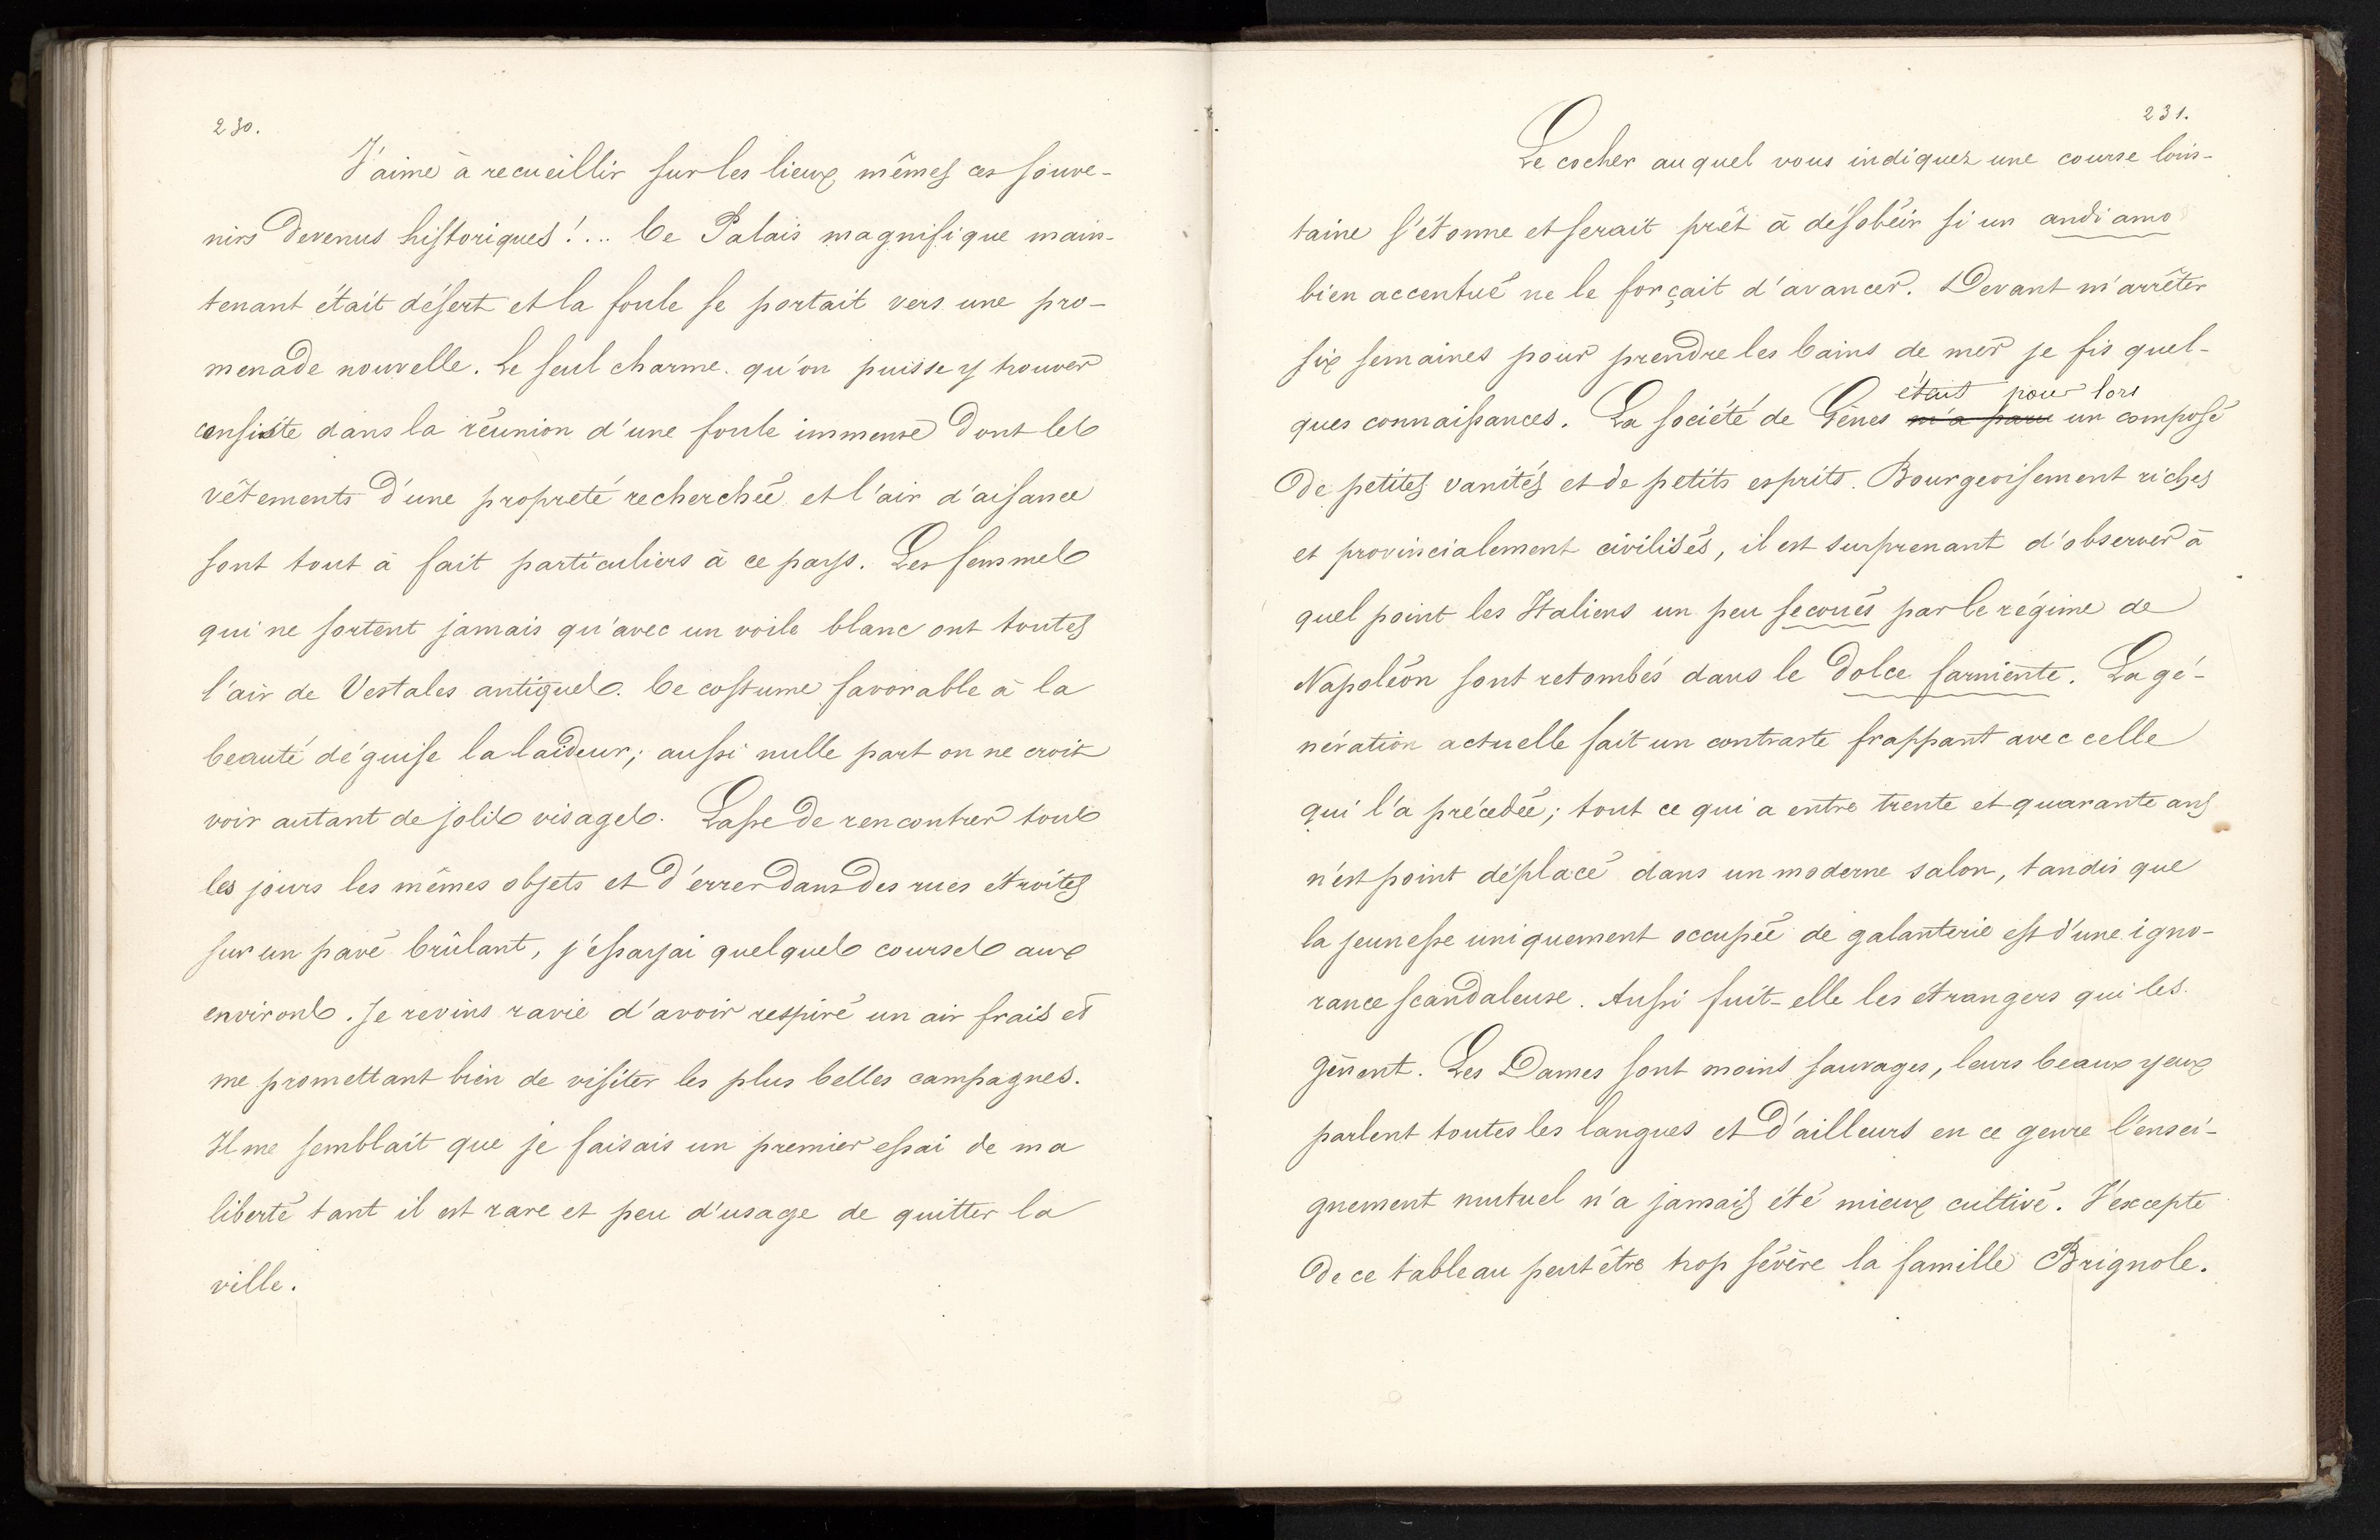 230.
J'aime à recueillir sur les lieux mêmes ces souve-
nirs devenus historiques !... Ce Palais magnifique main-
tenant était désert et la foule se portait vers une pro-
menade nouvelle. Le seul charme qu'on puisse y trouver
consiste dans la réunion d'une foule immense dont les
vêtements d'une propreté recherchée et l'air d'aisance
sont tout à fait particuliers à ce pays. Les femmes
qui ne sortent jamais qu'avec un voile blanc ont toutes
l'air de Vestales antiques. Ce costume favorable à la
beauté déguise la laideur; aussi nulle part on ne croit
voir autant de jolis visages. Lasse de rencontrer tous
les jours les mêmes objets et d'errer dans des rues étroites
sur un pavé brûlant, j'essayai quelques courses aux
environs. Je revins ravie d'avoir respiré un air frais et
me promettant bien de visiter les plus belles campagnes.
Il me semblait que je faisais un premier essai de ma
liberté tant il est rare et peu d'usage de quitter la
ville.
231.
Le cocher auquel vous indiquez une course loin-
taine s'étonne et serait prêt à désobéir si un andiamo
bien accentué ne le forçait d'avancer. Devant m'arrêter
six semaines pour prendre les bains de mer je fis quel-
était pour lors
ques connaissances. La société de Gênes m'a paru un composé
de petites vanités et de petits esprits. Bourgeoisement riches
et provincialement civilisés, il est surprenant d'observer à
quel point les Italiens un peu secoués par le régime de
Napoléon sont retombés dans le dolce farniente. La gé-
nération actuelle fait un contraste frappant avec celle
qui l'a précédée; tout ce qui a entre trente et quarante ans
n'est point déplacé dans un moderne salon, tandis que
la jeunesse uniquement occupée de galanterie est d'une igno-
rance scandaleuse. Aussi fuit-elle les étrangers qui les
gênent. Les Dames sont moins sauvages, leurs beaux yeux
parlent toutes les langues et d'ailleurs en ce genre l'ensei-
gnement mutuel n'a jamais été mieux cultivé. J'excepte
de ce tableau peut être trop sévère la famille Brignole.